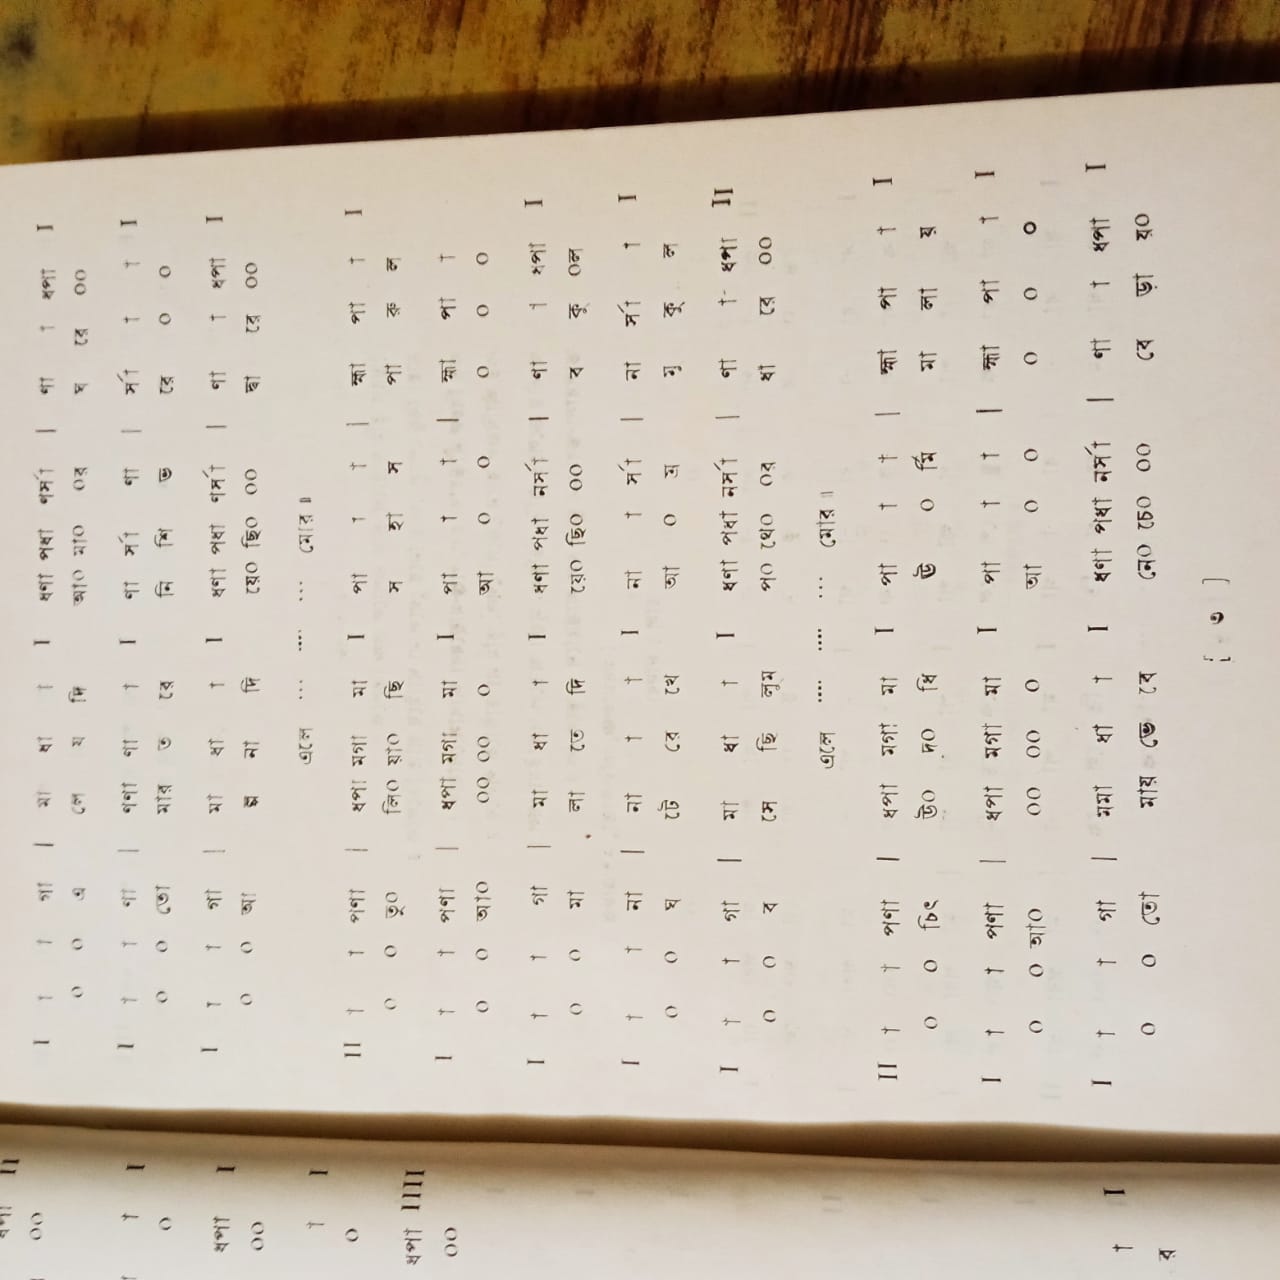 I † † গা | মা ধা † I ধণা পধা ণর্সা | ণা † ধপা I
০ ০ এ লে য দি আ০ মা০ ০র ঘ রে ০০
I † † ণা | ণণা ণা † I ণা র্সা ণা | র্সা † † I
০ ০ তো মার ত রে নি শি ভ রে ০ ০
I † † গা | মা ধা † I ধণা পধা ণর্সা | ণা † ধপা I
০ ০ আ ল্প না দি য়ে০ ছি০ ০০ দ্বা রে ০০
এলে ... .... ... মোর॥
II † † পণা | ধপা মগা মা I পা † † | হ্মা পা † I
০ ০ তু০ লি০ য়া০ ছি স হা স পা রু ল
I † † পণা | ধপা মগা মা I পা † † | হ্মা পা † I
০ ০ আ০ ০০ ০০ ০ আ ০ ০ ০ ০ ০
I † † গা | মা ধা † I ধণা পধা নর্সা | ণা † ধপা I
০ ০ মা লা তে দি য়ে০ ছি০ ০০ ব কু ০ল
I † † না | না † † I না † র্সা | না র্সা † I
০ ০ ঘ টে রে খে আ ০ ম্র মু কু ল
I † † গা | মা ধা † I ধণা পধা নর্সা | ণা † ধপা II
০ ০ ব সে ছি লুম্ প০ থে০ ০র ধা রে ০০
এলে .... .... ... মোর॥
II † † পণা | ধপা মগা মা I পা † † | হ্মা পা † I
০ ০ চিৎ উ০ দ০ ধি ঊ ০ র্মি মা লা য়
I † † পণা | ধপা মগা মা I পা † † | হ্মা পা † I
০ ০ আ০ ০০ ০০ ০ আ ০ ০ ০ ০ ০
I † † গা | মমা ধা † I ধণা পধা নর্সা | ণা † ধপা I
০ ০ তো মায় ভে বে নে০ চে০ ০০ বে ড়া য়০
[ ৩ ]
ধপা II
০০
† I
০
ধপা I
০০
† I
০
ধপা IIII
০০
† I
র